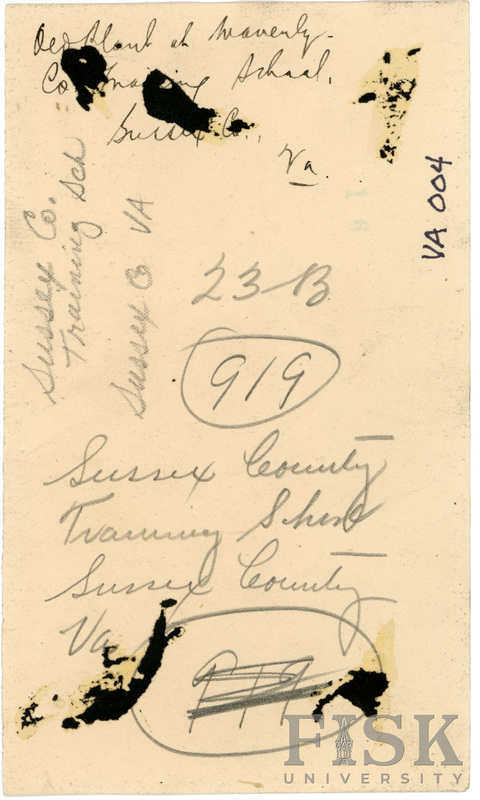 Old Plant at Waverly.
Co. Training School,
Sussex Co.,
Va.
VA 004
16
Sussex Co.
Training Sch
Sussex Co VA
23-B
919
Sussex County
Training School
Sussex County
Va
919
FISK
UNIVERSITY